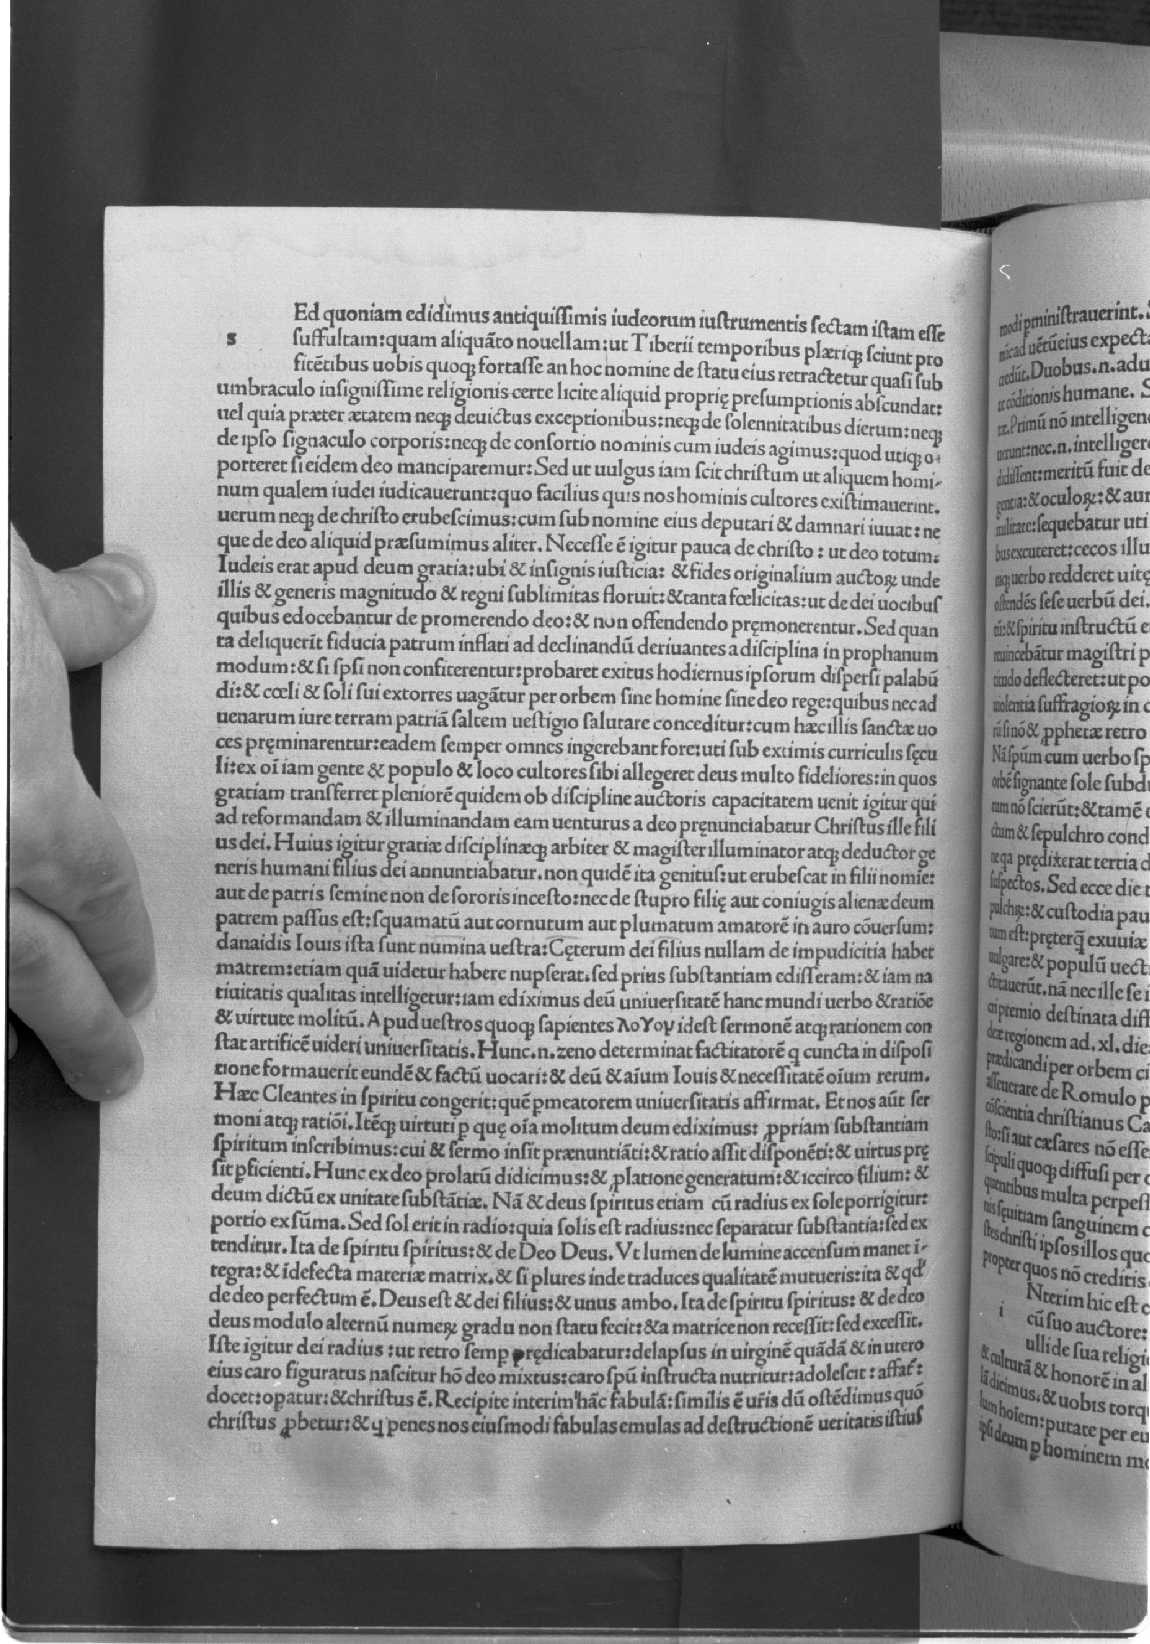 Ed quoniam edidimus antiquiſſimis iudeorum iuſtrumentis ſectam iſtam eſſe
s ſuffultam:quam aliquāto nouellam:ut Tiberii temporibus plæriq; ſciunt pro
fitētibus uobis quoq; fortaſſe an hoc nomine de ſtatu eius retractetur quaſi ſub
umbraculo inſigniſſime religionis certe licite aliquid proprię preſumptionis abſcundat:
uel quia præter ætatem neq; deuictus exceptionibus:neq; de ſolennitatibus dierum:neq;
de ipſo ſignaculo corporis:neq; de conſortio nominis cum iudeis agimus:quod utiq; o-
porteret ſi eidem deo manciparemur:Sed ut uulgus iam ſcit chriſtum ut aliquem homi-
num qualem iudei iudicauerunt:quo facilius quis nos hominis cultores exiſtimauerint.
uerum neq; de chriſto erubeſcimus:cum ſub nomine eius deputari & damnari iuuat:ne
que de deo aliquid præſumimus aliter. Neceſſe ē igitur pauca de chriſto : ut deo totum:
Iudeis erat apud deum gratia:ubi & inſignis iuſticia: & fides originalium auctoꝝ unde
illis & generis magnitudo & regni ſublimitas floruit:&tanta fœlicitas:ut de dei uocibuſ
quibus edocebantur de promerendo deo:& non offendendo pręmonerentur. Sed quan
ta deliquerīt fiducia patrum inflati ad declinandū deriuantes a diſciplina in prophanum
modum:& ſi ipſi non confiterentur:probaret exitus hodiernus ipſorum diſperſi palabū
di:& cœli & ſoli ſui extorres uagātur per orbem ſine homine ſine deo rege:quibus nec ad
uenarum iure terram patriā ſaltem ueſtigio ſalutare conceditur:cum hæc illis ſanctæ uo
ces pręminarentur:eadem ſemper omnes ingerebant fore:uti ſub extimis curriculis ſęcu
li:ex oī iam gente & populo & loco cultores ſibi allegeret deus multo fideliores:in quos
gratiam transferret pleniorē quidem ob diſcipline auctoris capacitatem uenit igitur qui
ad reformandam & illuminandam eam uenturus a deo pręnunciabatur Chriſtus ille fili
us dei. Huius igitur gratiæ diſciplinæq; arbiter & magiſter illuminator atq; deductor ge
neris humani filius dei annuntiabatur. non quidē ita genitus:ut erubeſcat in filii nomīe:
aut de patris ſemine non de ſororis inceſto:nec de ſtupro filię aut coniugis alienæ deum
patrem paſſus eſt:ſquamatū aut cornutum aut plumatum amatorē in auro cōuerſum:
danaidis Iouis iſta ſunt numina ueſtra:Cęterum dei filius nullam de impudicitia habet
matrem:etiam quā uidetur habere nupſerat.ſed prius ſubſtantiam ediſſeram:& iam na
tiuitatis qualitas intelligetur:iam ediximus deū uniuerſitatē hanc mundi uerbo &ratiōe
& uirtute molitū. Apud ueſtros quoq; ſapientes λογον ideſt ſermonē atq; rationem con
ſtat artificē uideri uniuerſitatis. Hunc.n.zeno determinat factitatorē q cuncta in diſpoſi
tione formauerit eundē & factū uocari:& deū & aīum Iouis & neceſſitatē oīum rerum.
Hæc Cleantes in ſpiritu congerit:quē ꝑmeatorem uniuerſitatis affirmat. Et nos aūt ſer
moni atq; ratiōi. Itēq; uirtuti ꝑ quę oīa molitum deum ediximus: ꝓpriam ſubſtantiam
ſpiritum inſcribimus:cui & ſermo inſit prænuntiāti:& ratio aſſit diſponēti:& uirtus prę
ſit ꝑficienti. Hunc ex deo prolatū didicimus:& ꝓlatione generatum:& iccirco filium: &
deum dictū ex unitate ſubſtātiæ. Nā & deus ſpiritus etiam cū radius ex ſole porrigitur:
portio ex ſūma. Sed ſol erit in radio:quia ſolis eſt radius:nec ſeparatur ſubſtantia:ſed ex
tenditur. Ita de ſpiritu ſpiritus:& de Deo Deus. Vt lumen de lumine accenſum manet i-
tegra:& īdefecta materiæ matrix.& ſi plures inde traduces qualitatē mutueris:ita & qd
de deo perfectum ē. Deus eſt & dei filius:& unus ambo. Ita de ſpiritu ſpiritus: & de deo
deus modulo alternū numeꝝ gradu non ſtatu fecit:& a matrice non receſſit:ſed exceſſit.
Iſte igitur dei radius : ut retro ſemp prędicabatur:delapſus in uirginē quādā & in utero
eius caro figuratus naſcitur hō deo mixtus:caro ſpū inſtructa nutritur:adoleſcit:affat:
docet:opatur:&chriſtus ē. Recipite interim hāc fabulā:ſimilis ē uris dū oſtēdimus quō
chriſtus ꝓbetur:& q penes nos eiuſmodi fabulas emulas ad deſtructionē ueritatis iſtiuſ
modi ꝑminiſtrauerint.
uētū eius expect
Duobus.n.adu
cōditionis humane. S
Primū nō intelligen
nec.n.intelliger
meritū fuit de
& oculoꝝ:& aur
ſequebatur uti
bus excuteret:cecos illu
uerbo redderet uitę
oſtendēs ſeſe uerbū dei.
& ſpiritu inſtructū e
magiſtri p
deflecteret:ut po
uiolentia ſuffragioꝝ in c
ꝓphetæ retro
Nā ſpūm cum uerbo ſp
orbē ſignante ſole ſubd
nō ſcierūt:& tamē
& ſepulchro cond
prędixerat tertia d
ſuſpectos. Sed ecce die t
& cuſtodia pau
eſt:pręterq̄ exuuiæ
uulgare:& populū uect
nā nec ille ſe i
premio deſtinata diſſ
regionem ad.xl.die
prædicandi per orbem ci
aſſeuerare de Romulo p
cōſcientia chriſtianus Ca
ſi aut cæſares nō eſſe
quoq; diffuſi per o
multa perpeſſ
ſęuitiam ſanguinem c
chriſti ipſos illos quo
propter quos nō creditis
Nterim hic eſt c
i cū ſuo auctore:
ulli de ſua religi
& culturā & honorē in al
dicimus:& uobis torq
hoīem:putate per eu
ipſi deum ꝑ hominem mo